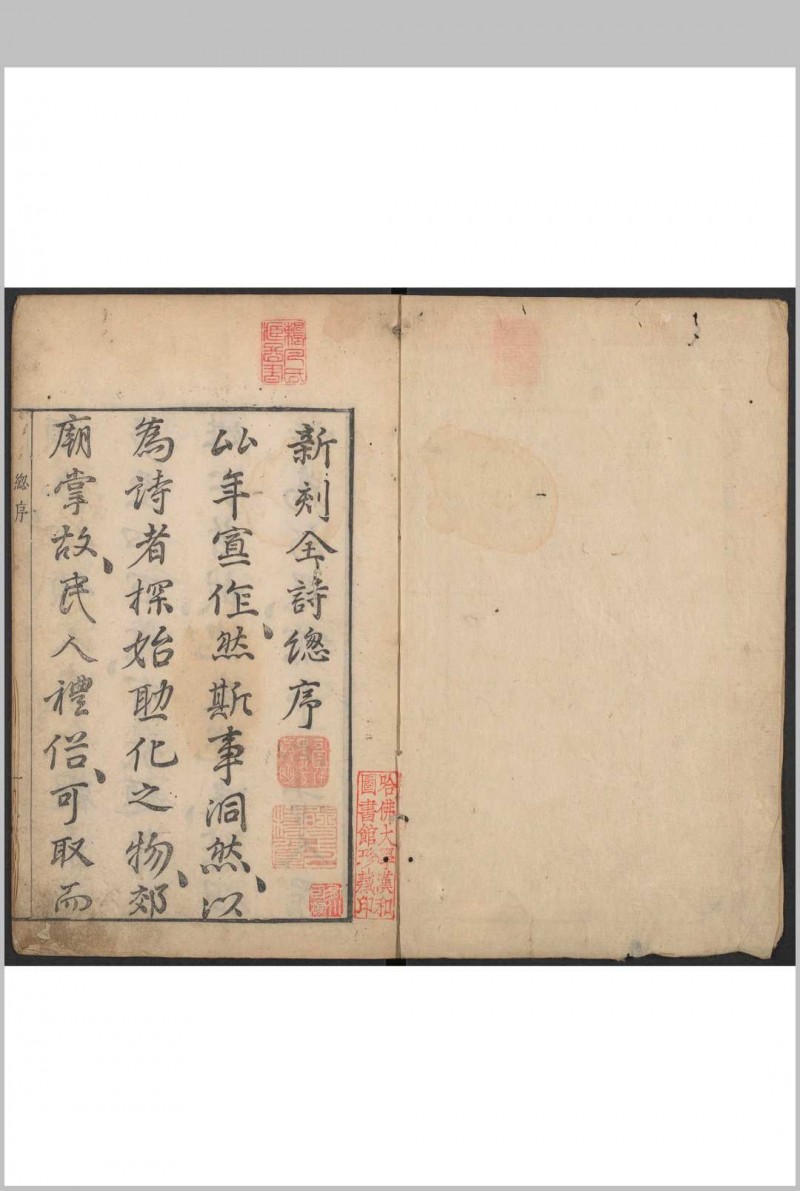 新刻全詩總序
此年宣作、然斯事洞然、以
為詩者探始助化之物、郊
廟掌故、民人禮俗、可取而
總序
哈佛大學漢和
圖書館珍藏印